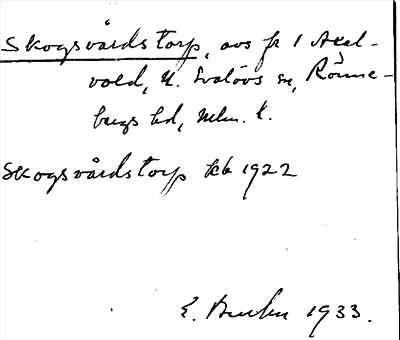 Skogsvårdstorp, avs fr 1 Axel-
vold, N. Svalövs sn, Rönne-
bergs hd, Mlm. l.
Skogsvårdstorp kb 1922
E. 1933.